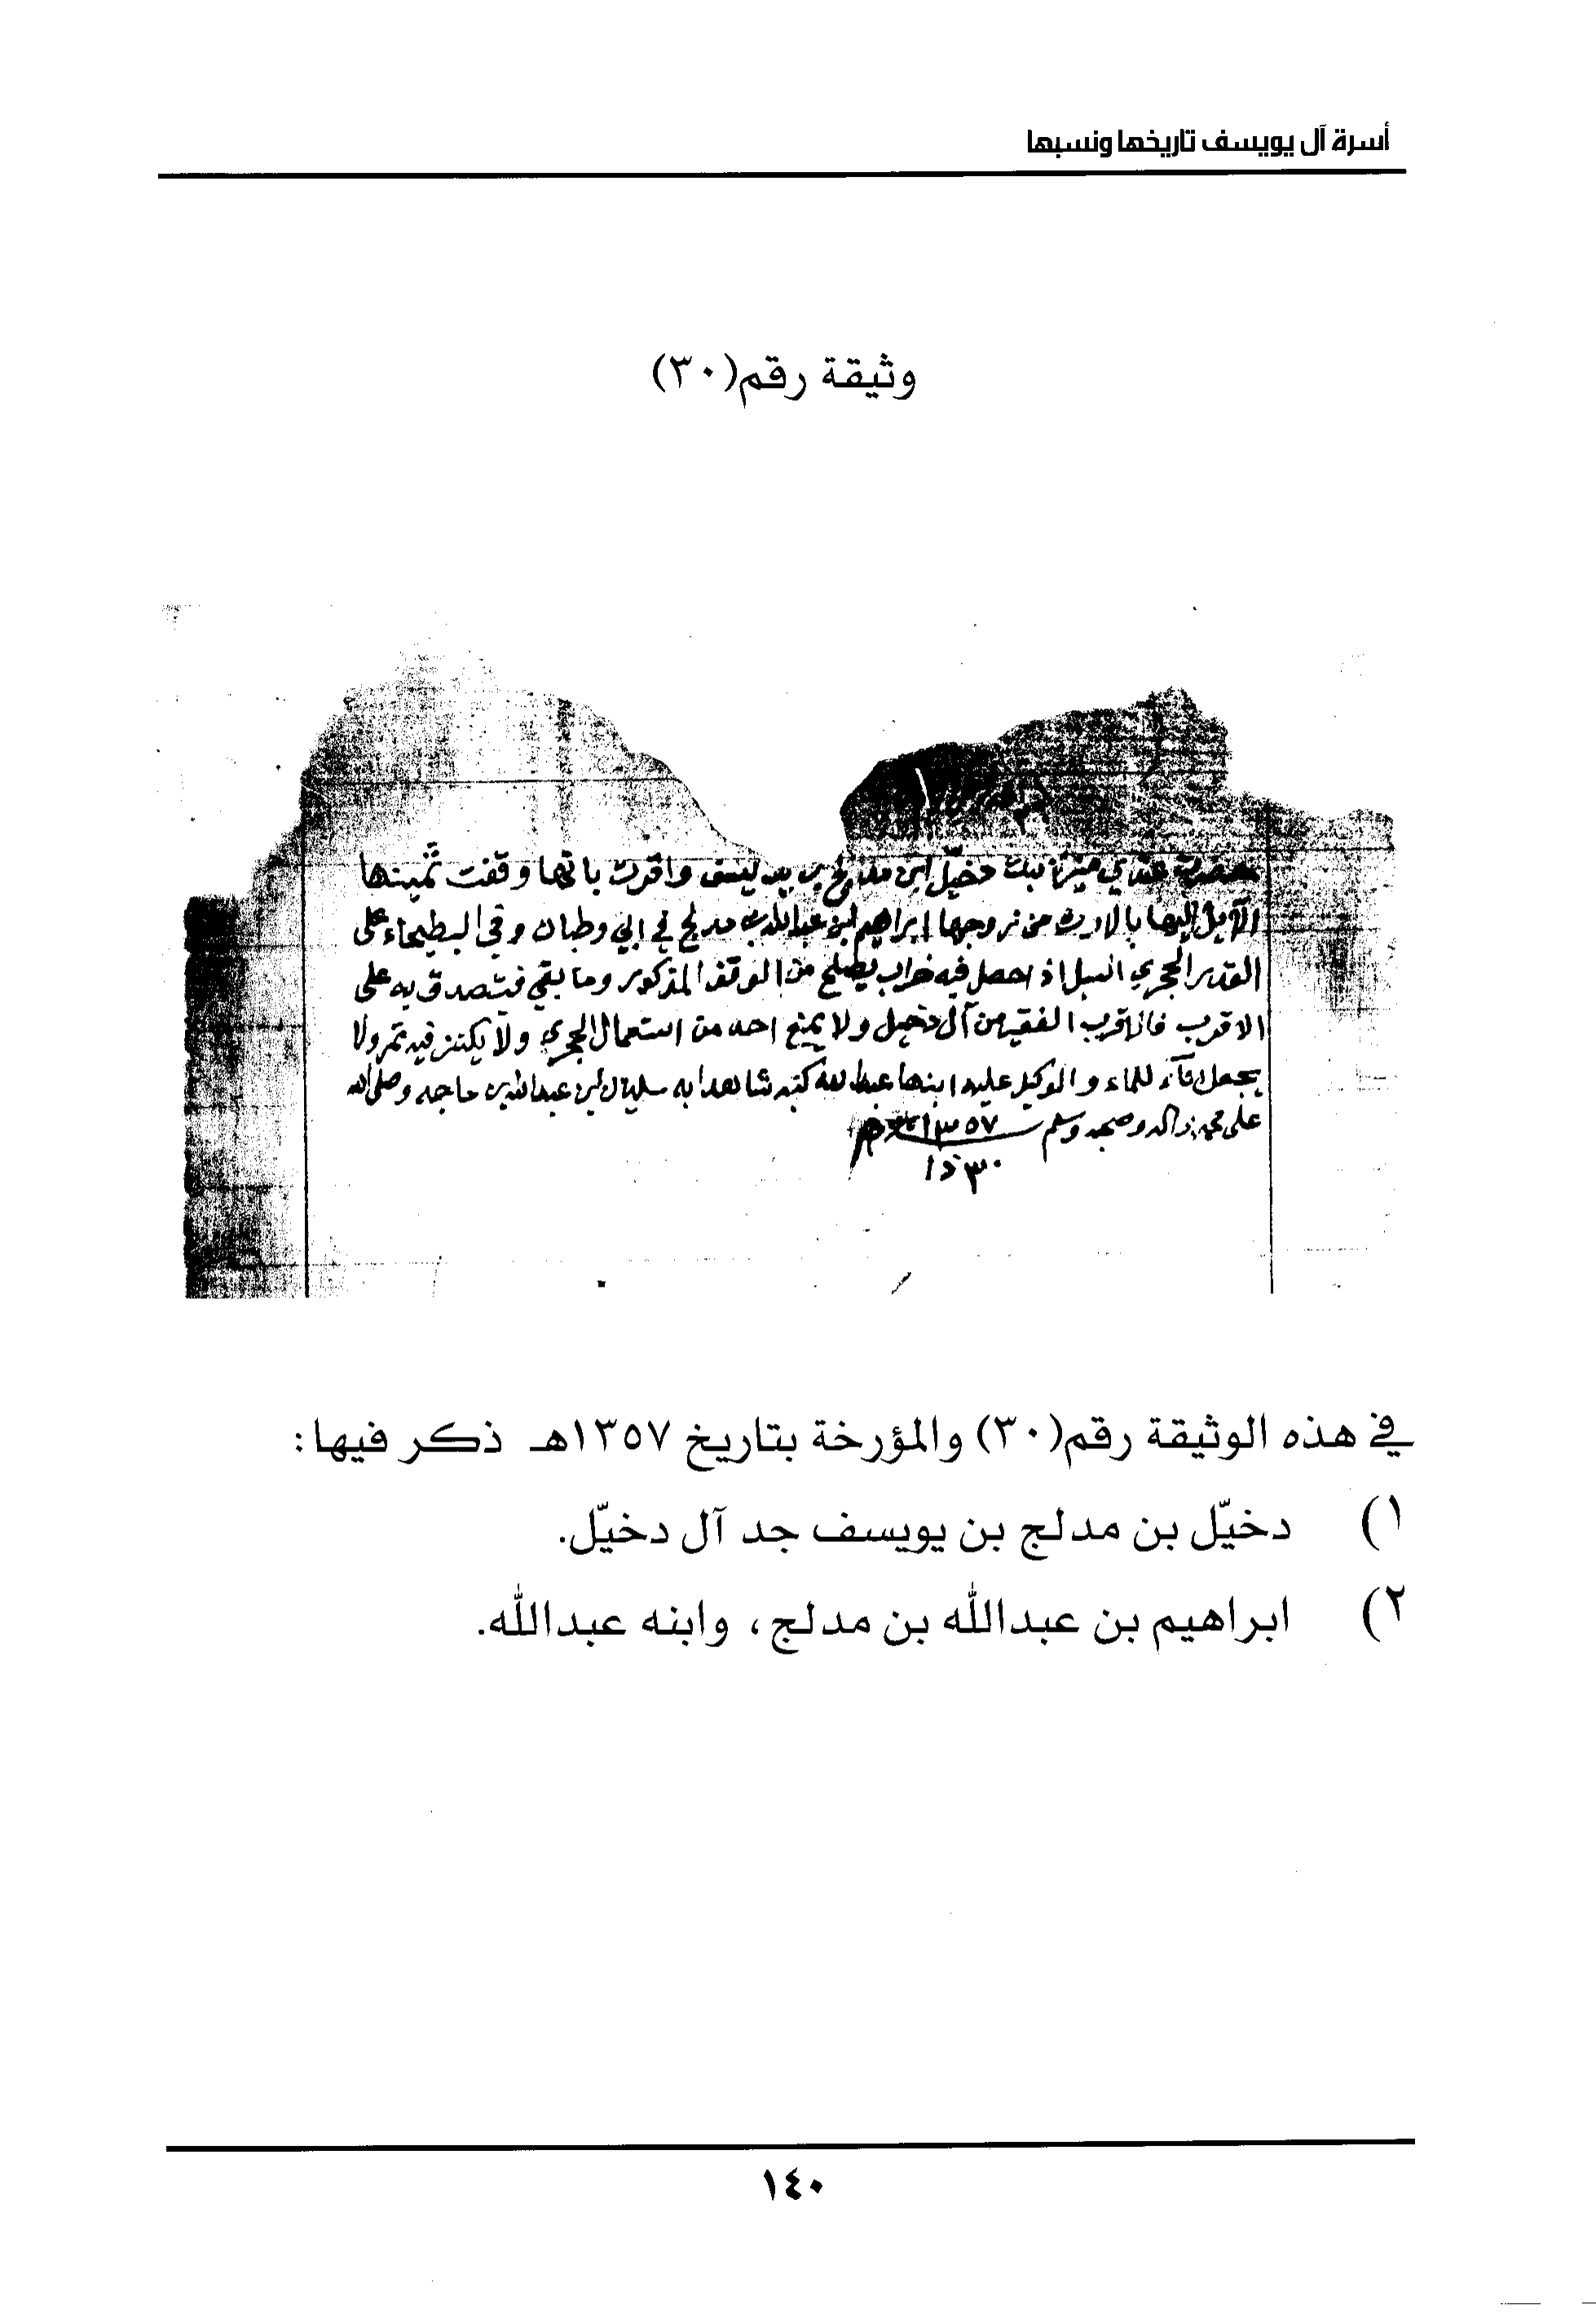 أسرة آل يويسف تاريخها ونسبها
وثيقة رقم(٣٠)
حضرت عندي بنت دخيّل ابن مدلج بن يويسف واقرت بانها وقفت ثمينها
الآيل إليها بالارث من زوجها ابراهيم ابن عبدالله بن مدلج في ابي وطبان وفي البطيحاء على
القدر الحجري السبل اذ احصل فيه خراب يصلح من الوقف المذكور وما بقي فتصدق به على
الاقرب فالاقرب الفقير من آل دخيل ولا يمنع احد من استعمال الحجري ولا يكنز فيه تمر ولا
يجعل للماء والوكيل عليه ابنها عبدالله كتبه شاهدا به سليمان ابن عبدالله بن حاجد وصلى الله
على محمد واله وصحبه وسلم ١٣٥٧
٣٠ ذا
في هذه الوثيقة رقم(٣٠) والمؤرخة بتاريخ ١٣٥٧هـ ذكر فيها:
١) دخيّل بن مدلج بن يويسف جد آل دخيّل.
٢) ابراهيم بن عبدالله بن مدلج، وابنه عبدالله.
١٤٠